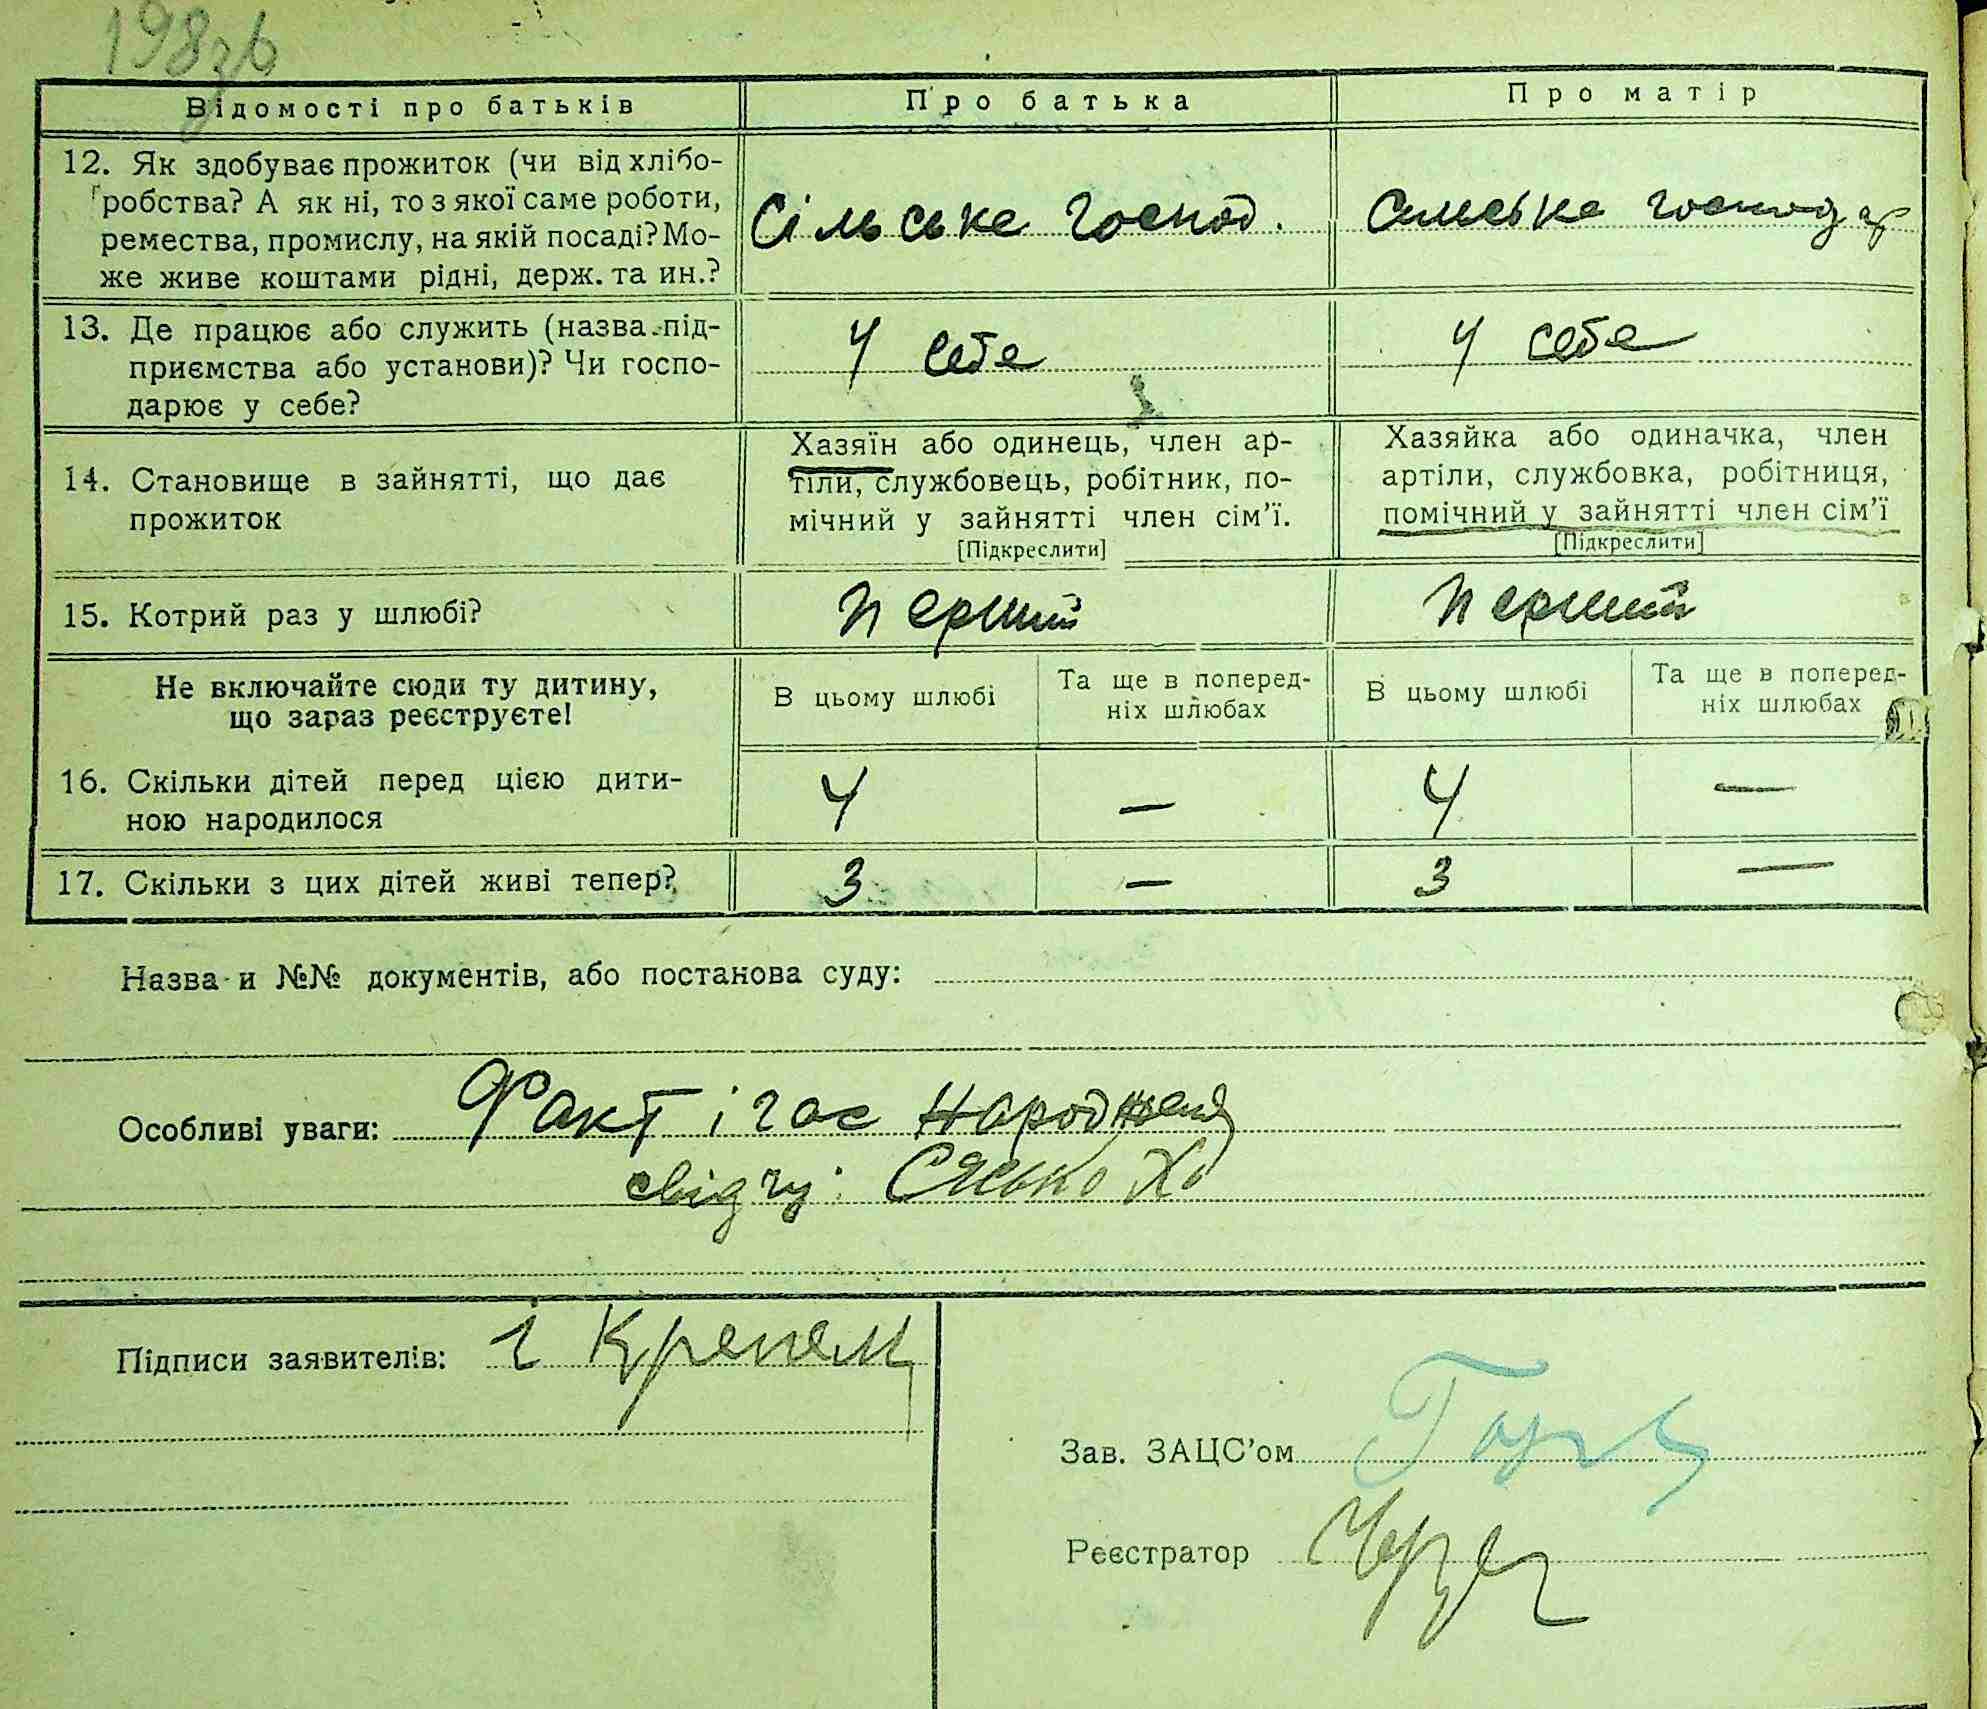 198зв
Відомості про батьків
Про батька
Про матір
12. Як здобуває прожиток (чи від хлібо-
робства? А як ні, то з якої саме роботи,
ремества, промислу, на якій посаді? Мо-
же живе коштами рідні, держ. та ин.?
Сільське господ.
Сільське господар
13. Де працює або служить (назва під-
приємства або установи)? Чи госпо-
дарює у себе?
У себе
У себе
14. Становище в зайнятті, що дає
прожиток
Хазяїн або одинець, член ар-
тіли, службовець, робітник, по-
мічний у зайнятті член сім’ї.
[Підкреслити]
Хазяйка або одиначка, член
артіли, службовка, робітниця,
помічний у зайнятті член сім’ї
[Підкреслити]
15. Котрий раз у шлюбі?
Перший
Перший
Не включайте сюди ту дитину,
що зараз реєструєте!
В цьому шлюбі
Та ще в поперед-
ніх шлюбах
В цьому шлюбі
Та ще в поперед-
ніх шлюбах
16. Скільки дітей перед цією дити-
ною народилося
4
—
4
—
17. Скільки з цих дітей живі тепер?
3
—
3
—
Назва и №№ документів, або постанова суду:
Особливі уваги: Факт і час народженя
свідчу:
Підписи заявителів:
Зав. ЗАЦС’ом
Реєстратор